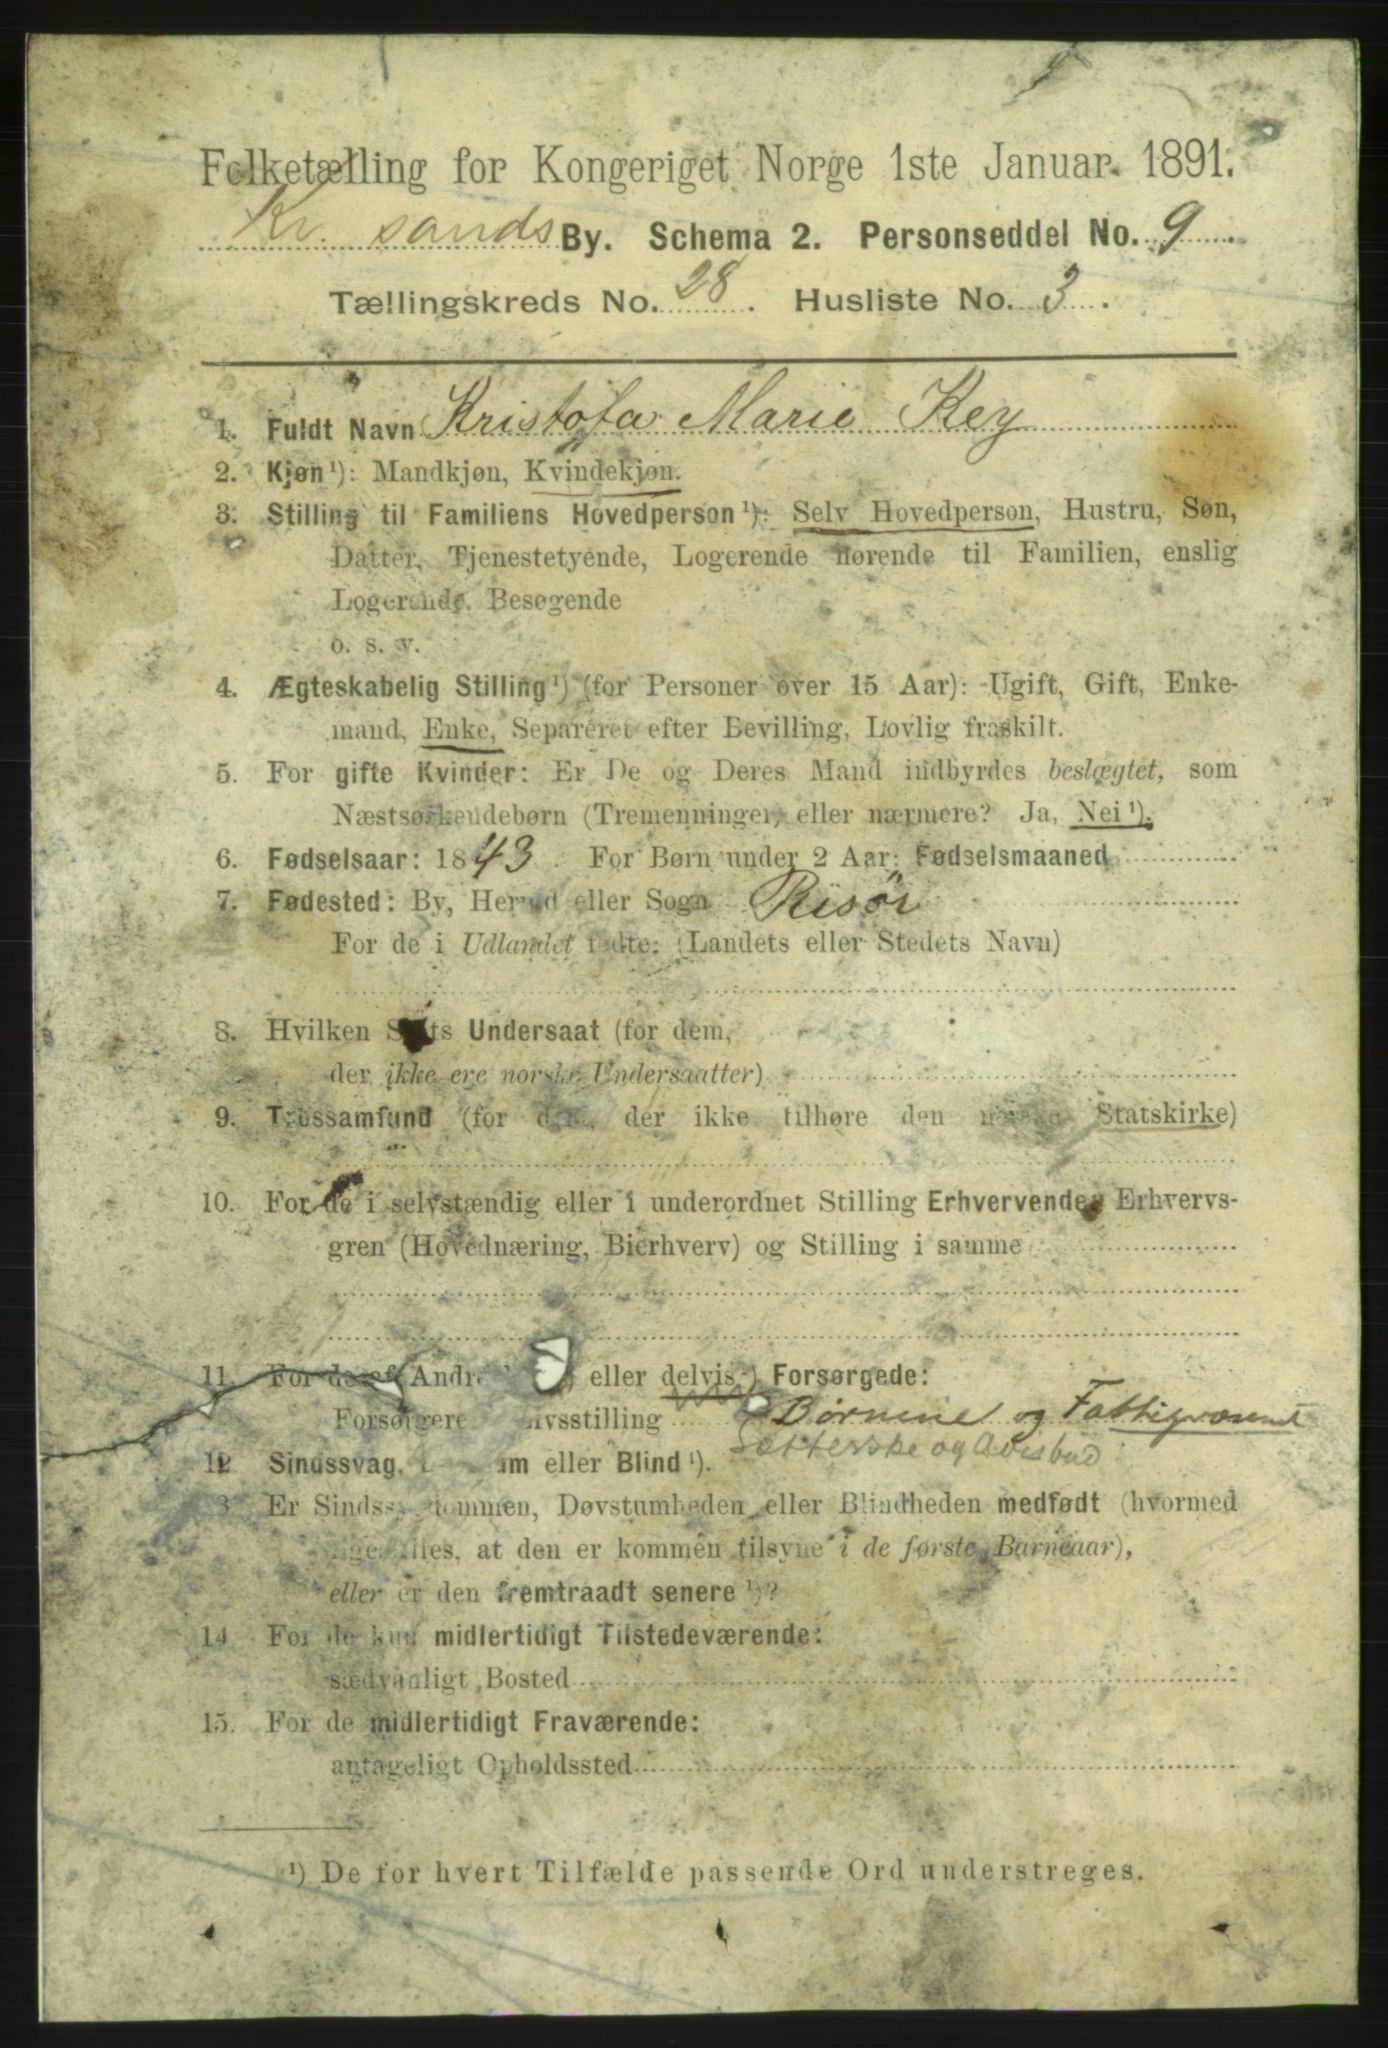 Folketælling for Kongeriget Norge 1ste Januar 1891.
Kr. sands By. Schema 2. Personseddel No. 9.
Tællingskreds No. 28. Husliste No. 3.
1. Fuldt Navn Kristofa Marie Key
2. Kjøn¹): Mandkjøn, Kvindekjøn.
3. Stilling til Familiens Hovedperson¹): Selv Hovedperson, Hustru, Søn,
Datter, Tjenestetyende, Logerende hørende til Familien, enslig
Logerende, Besøgende
o. s. v.
4. Ægteskabelig Stilling¹) (for Personer over 15 Aar): Ugift, Gift, Enke-
mand, Enke, Separeret efter Bevilling, Lovlig fraskilt.
5. For gifte Kvinder: Er De og Deres Mand indbyrdes beslægtet, som
Næstsøskendebørn (Tremenninger) eller nærmere? Ja, Nei¹).
6. Fødselsaar: 1843. For Børn under 2 Aar: Fødselsmaaned
7. Fødested: By, Herred eller Sogn Risör
For de i Udlandet fødte: (Landets eller Stedets Navn)
8. Hvilken Stats Undersaat (for dem,
der ikke ere norske Undersaatter)
9. Trossamfund (for dem, der ikke tilhøre den norske Statskirke)
10. For de i selvstændig eller i underordnet Stilling Erhvervende: Erhvervs-
gren (Hovednæring, Bierhverv) og Stilling i samme
11. For de af Andre eller delvis¹) Forsørgede:
Forsørgere ivsstilling Børnene og Fattigvæsenet
Sætterske og Avisbud
12. Sindssvag, eller Blind¹).
13. Er Sindssygdommen, Døvstumheden eller Blindheden medfødt (hvormed
at den er kommen tilsyne i de første Barneaar),
eller er den fremtraadt senere¹)?
14. For de kun midlertidigt Tilstedeværende:
sædvanligt Bosted
15. For de midlertidigt Fraværende:
antageligt Opholdssted
¹) De for hvert Tilfælde passende Ord understreges.